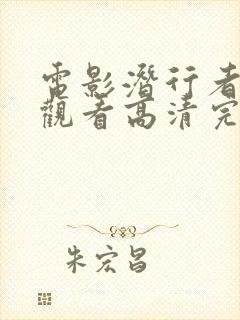 電影潛行者
觀看高清完
朱宏昌